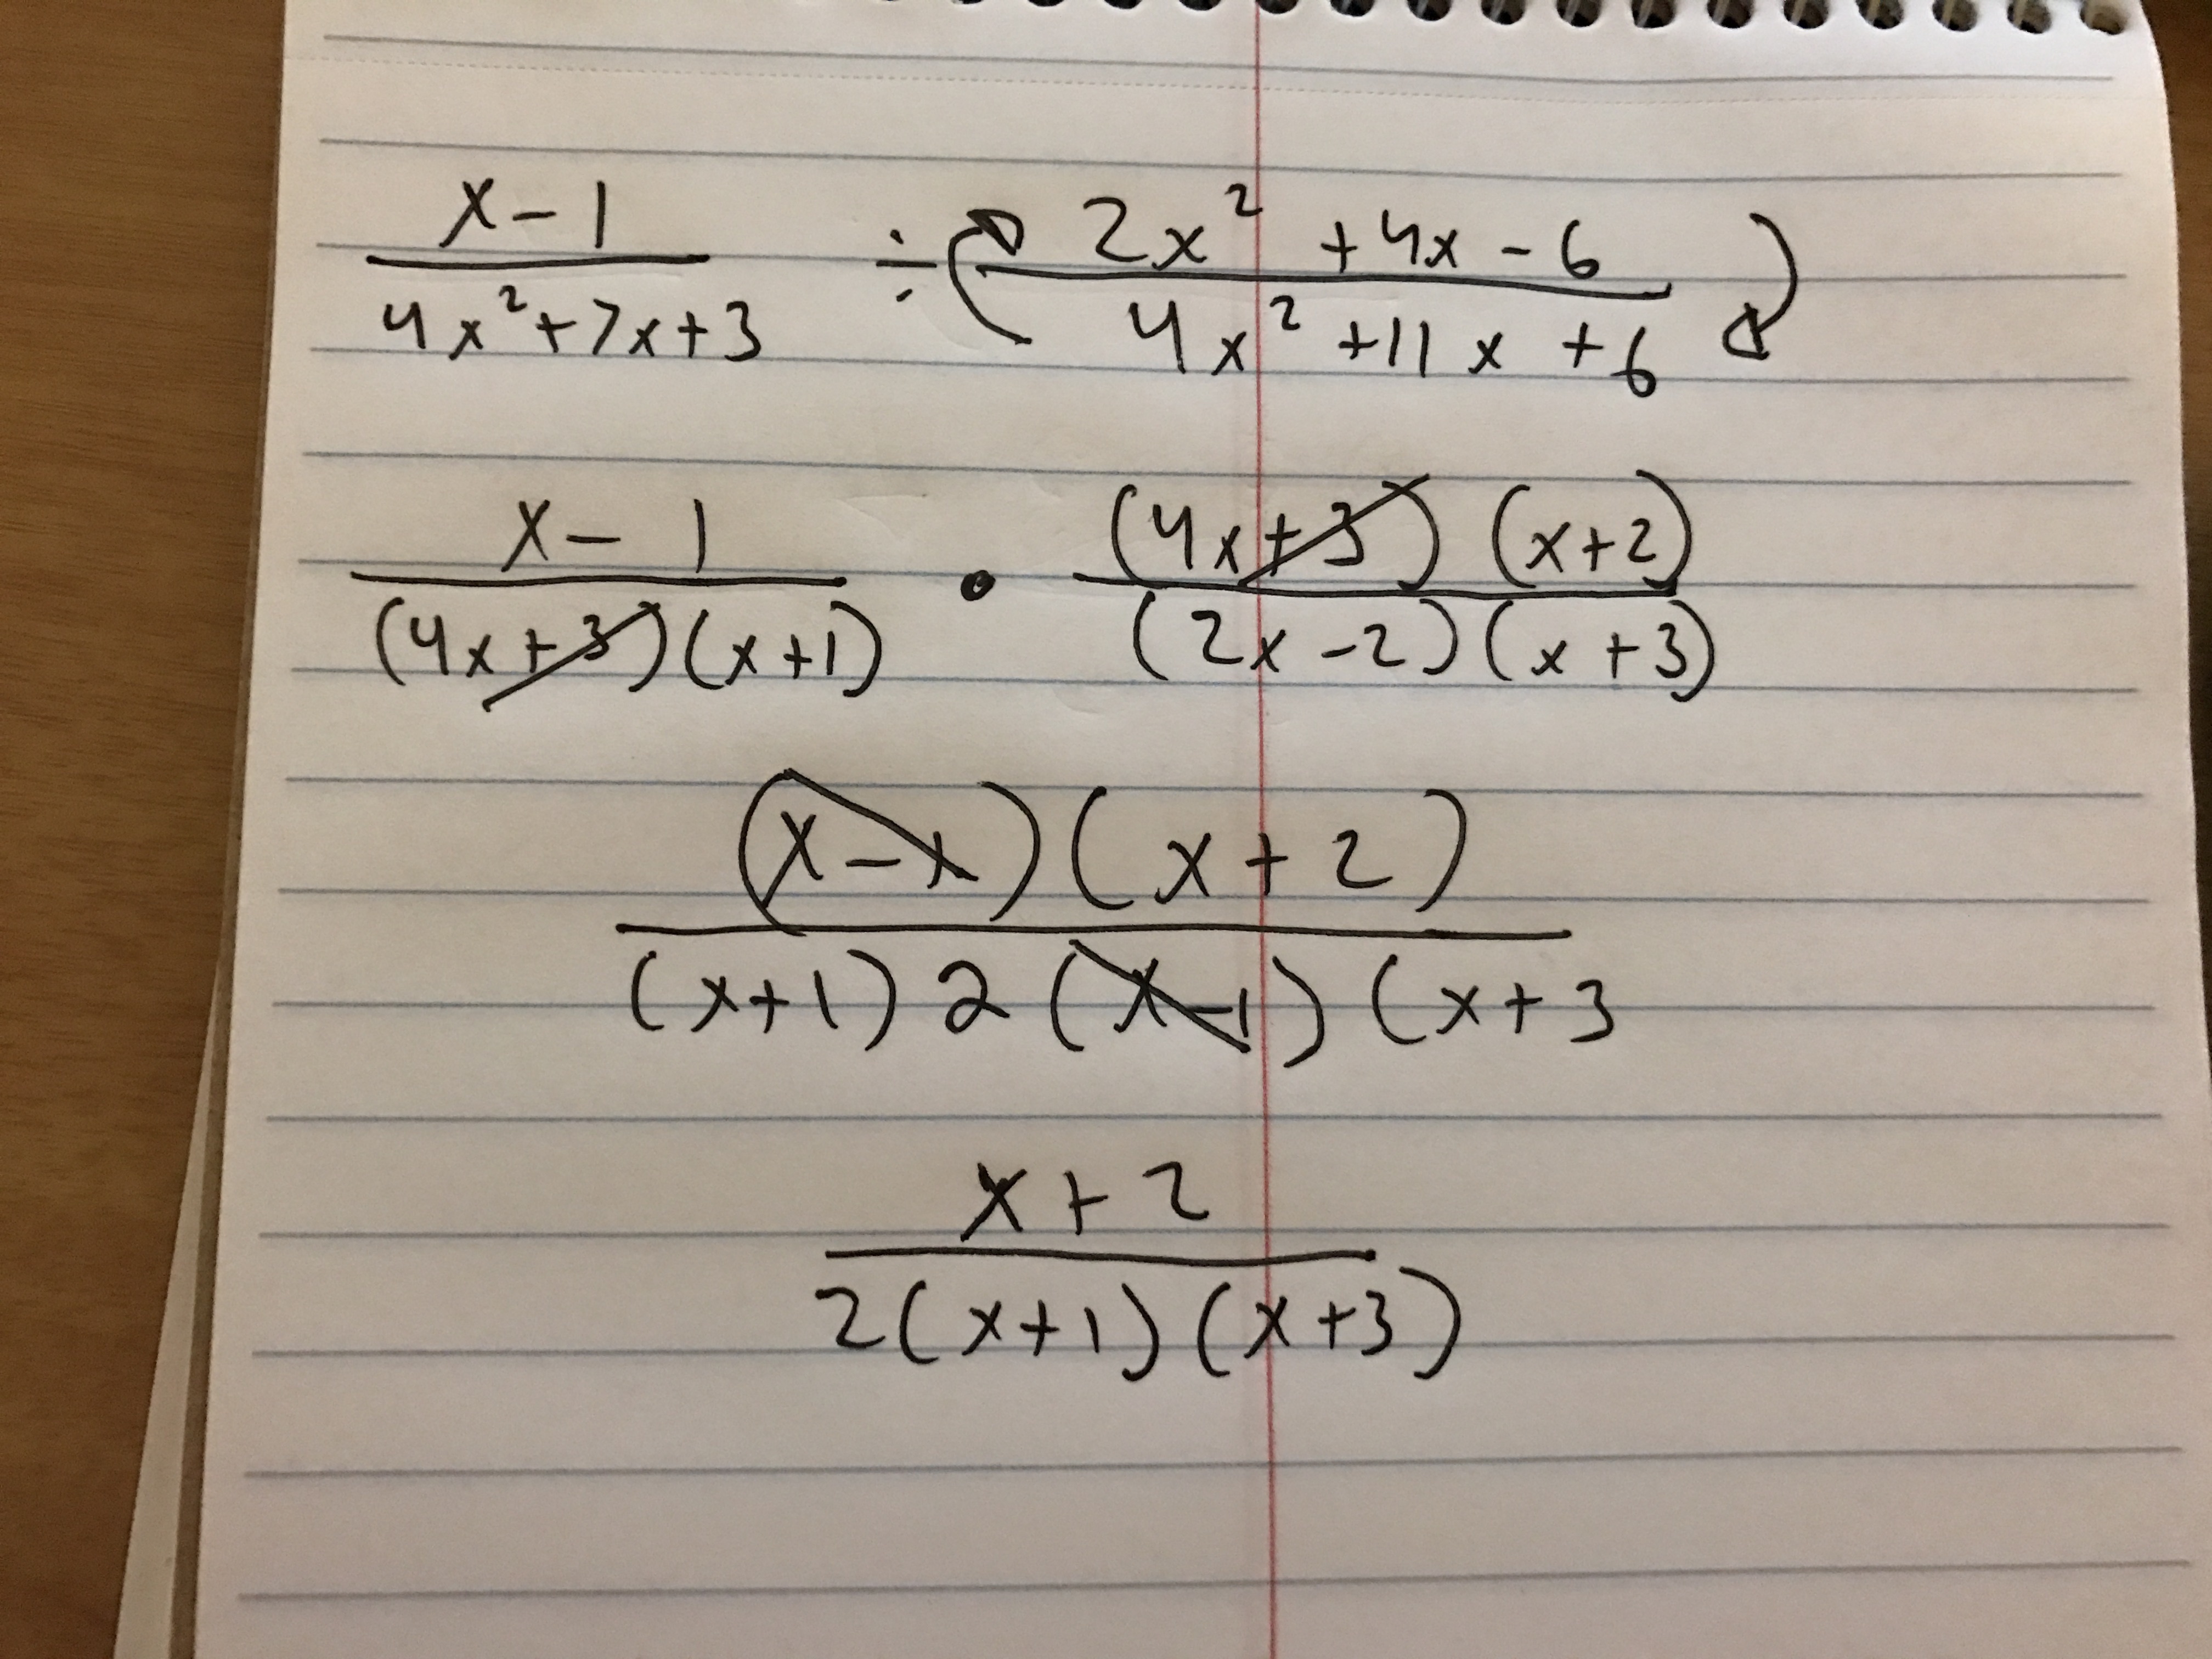 x - 1 ÷ 2x² + 4x - 6
4x² + 7x + 3 4x² + 11x + 6
x - 1 • (4x + 3) (x + 2)
(4x + 3)(x + 1) (2x - 2)(x + 3)
(x - x)(x + 2)
(x + 1) 2 (x - 1) (x + 3
x + 2
2(x + 1)(x + 3)